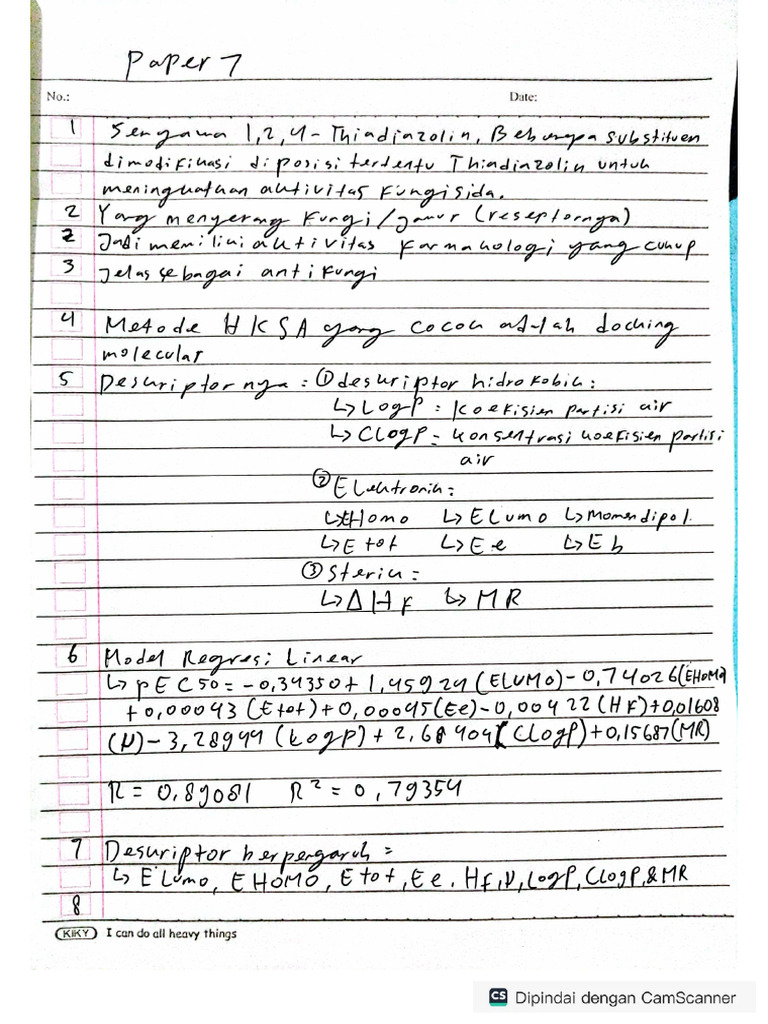 Paper 7
No.: Date:
1 Senyawa 1,2,4-Thiadiazolin, Beberapa substituen
dimodifikasi diposisi tertentu Thiadiazolin untuk
meninguatkan aktivitas Fungisida.
2 Yang menyerang Fungi/Jamur (reseptornya)
2 Jadi memiliki aktivitas Farmakologi yang cukup
3 Jelas sebagai anti Fungi
4 Metode HKSA yang cocok adalah docking
molecular
5 Deskriptor nya = ① deskriptor hidrofobik :
↳ LogP = Koefisien Partisi air
↳ CLogP = Konsentrasi Koefisien Partisi
air
② Elektronik =
↳ EHomo ↳ ELumo ↳ Momendipol.
↳ Etot ↳ Ee ↳ Eb
③ Sterik =
↳ ΔHF ↳ MR
6 Model Regresi Linear
↳ pEC50 = -0,34350 + 1,45924 (ELUMO) - 0,74026 (EHOMO)
+0,00043 (Etot) + 0,00045 (Ee) - 0,00422 (HF) + 0,01608
(μ) - 3,28944 (LogP) + 2,68404 (CLogP) + 0,15687 (MR)
R = 0,89081 R² = 0,79354
7 Deskriptor berpengaruh =
↳ ELumo, EHOMO, Etot, Ee, HF, μ, LogP, CLogP, & MR
8
KIKY I can do all heavy things
CS Dipindai dengan CamScanner